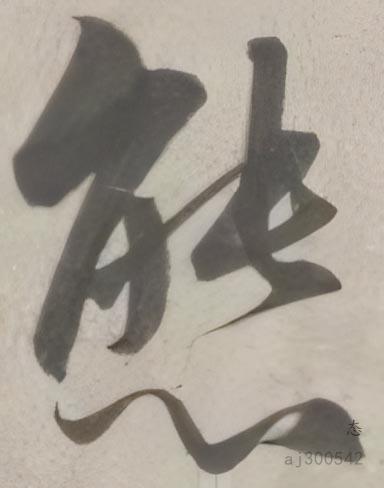 態
态
aj300542